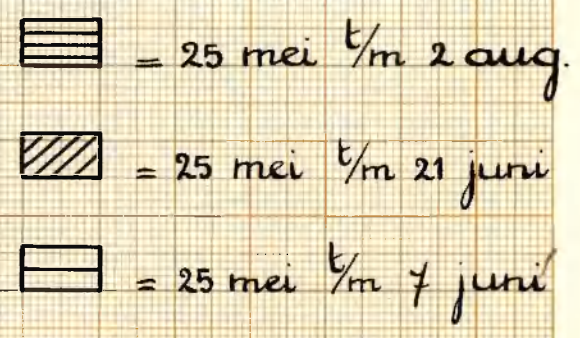 = 25 mei t/m 2 aug.
= 25 mei t/m 21 juni
= 25 mei t/m 7 juni